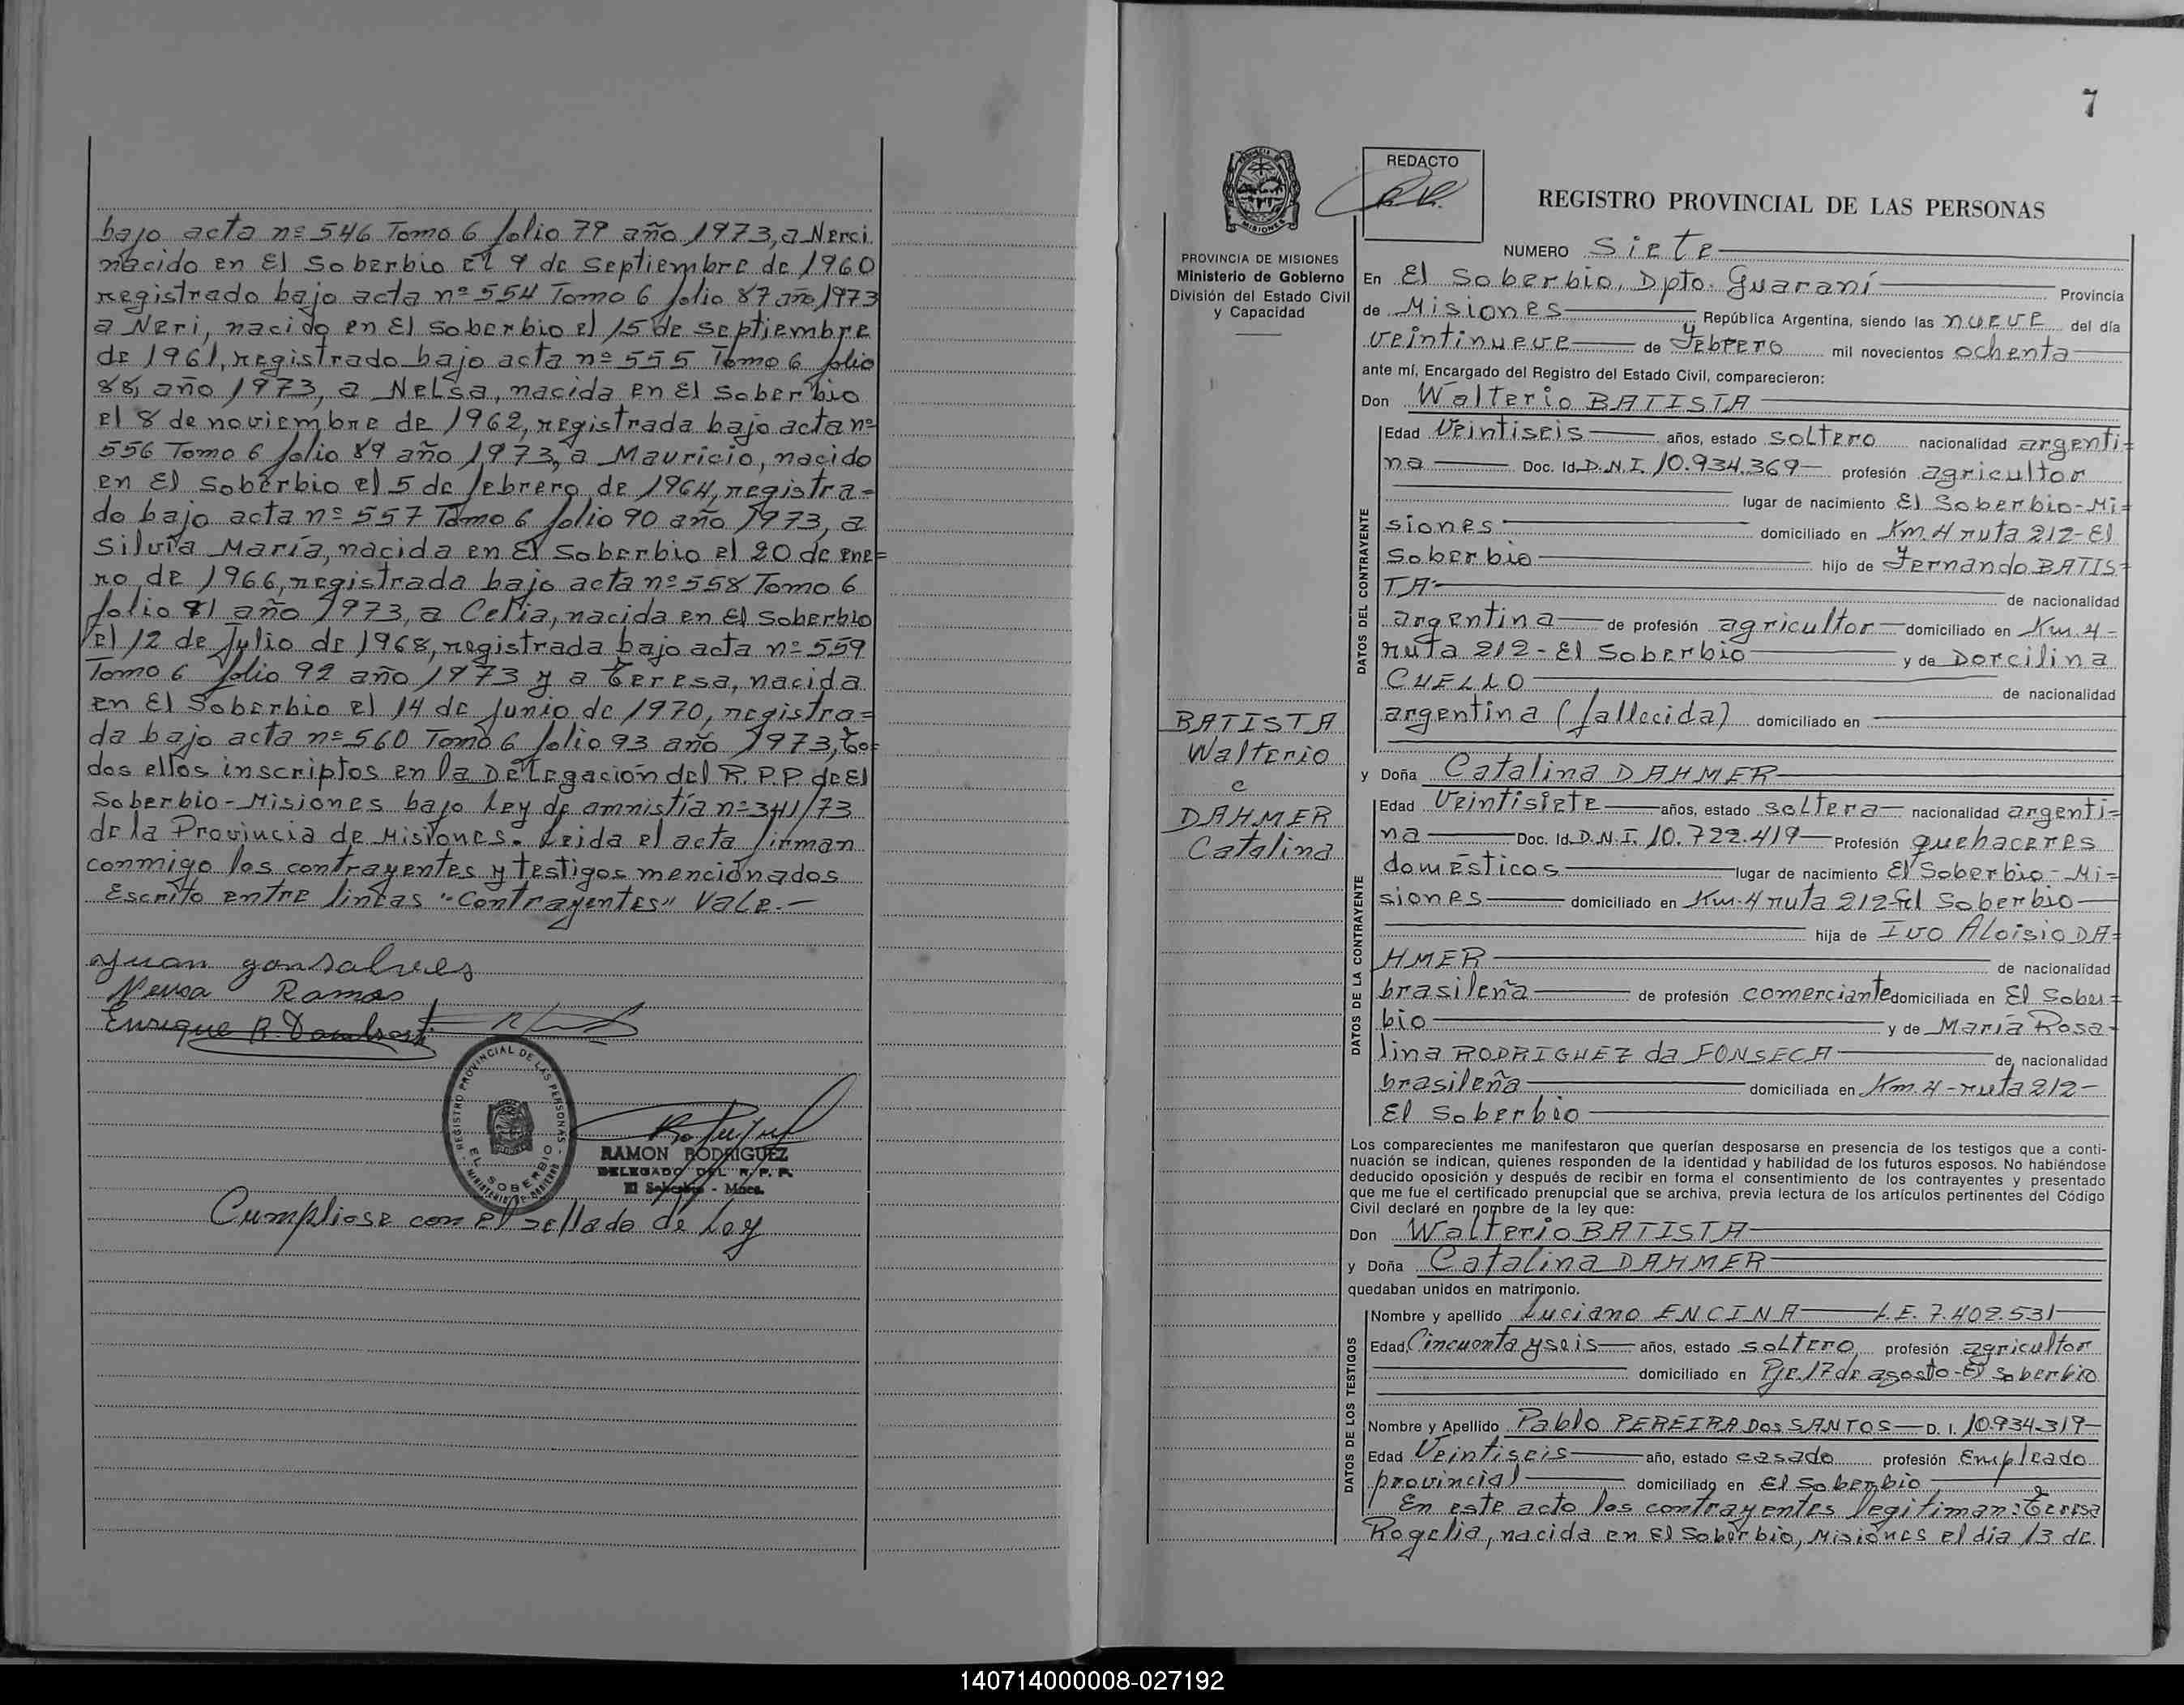 bajo acta nº 546 Tomo 6 folio 79 año 1973, a Nerci
nacido en El Soberbio el 9 de septiembre de 1960
registrado bajo acta nº 554 Tomo 6 folio 87 año 1973
a Neri, nacido en El Soberbio el 15 de septiembre
de 1961, registrado bajo acta nº 555 Tomo 6 folio
88, año 1973, a Nelsa, nacida en El Soberbio
el 8 de noviembre de 1962, registrada bajo acta nº
556 Tomo 6 folio 89 año 1973, a Mauricio, nacido
en El Soberbio el 5 de febrero de 1964, registra=
do bajo acta nº 557 Tomo 6 folio 90 año 1973, a
Silvia María, nacida en El Soberbio el 20 de ene=
ro de 1966, registrada bajo acta nº 558 Tomo 6
folio 91 año 1973, a Celia, nacida en El Soberbio
el 12 de Julio de 1968, registrada bajo acta nº 559
Tomo 6 folio 92 año 1973 y a Teresa, nacida
en El Soberbio el 14 de Junio de 1970, registra=
da bajo acta nº 560 Tomo 6 folio 93 año 1973, to=
dos ellos inscriptos en la Delegación del R.P.P. de El
Soberbio - Misiones bajo ley de amnistía nº 341/73
de la Provincia de Misiones. Leida el acta firman
conmigo los contrayentes y testigos mencionados
Escrito entre lineas "Contrayentes" Vale.-
Juan gonsalves
Neusa Ramos
Enrique R.
REGISTRO PROVINCIAL DE LAS PERSONAS
EL SOBERBIO
RAMON RODRIGUEZ
DELEGADO DEL R. P. P.
El Soberbio - Mnes.
Cumpliose con el sellado de Ley
7
PROVINCIA DE MISIONES
REDACTO
REGISTRO PROVINCIAL DE LAS PERSONAS
PROVINCIA DE MISIONES
Ministerio de Gobierno
División del Estado Civil
y Capacidad
BATISTA
Walterio
c
DAHMER
Catalina
NUMERO Siete
En El Soberbio, Dpto. Guaraní Provincia
de Misiones República Argentina, siendo las nueve del día
veintinueve de Febrero mil novecientos ochenta
ante mí, Encargado del Registro del Estado Civil, comparecieron:
Don Walterio BATISTA
DATOS DEL CONTRAYENTE
Edad Veintiseis años, estado soltero nacionalidad argenti=
na Doc. Id. D.N.I. 10.934.369 profesión agricultor
lugar de nacimiento El Soberbio-Mi=
siones domiciliado en Km. 4 ruta 212-El
Soberbio hijo de Fernando BATIS=
TA de nacionalidad
argentina de profesión agricultor domiciliado en Km 4-
ruta 212-El Soberbio y de Dorcilina
CUELLO de nacionalidad
argentina (fallecida) domiciliado en
y Doña Catalina DAHMER
DATOS DE LA CONTRAYENTE
Edad Veintisiete años, estado soltera nacionalidad argenti=
na Doc. Id. D.N.I. 10.722.419 Profesión quehaceres
domésticos lugar de nacimiento El Soberbio-Mi=
siones domiciliado en Km. 4 ruta 212-El Soberbio
hija de Ivo Aloisio DA=
HMER de nacionalidad
brasileña de profesión comerciante domiciliada en El Sober=
bio y de María Rosa-
lina RODRIGUEZ da FONSECA de nacionalidad
brasileña domiciliada en Km. 4-ruta 212-
El Soberbio
Los comparecientes me manifestaron que querían desposarse en presencia de los testigos que a conti-
nuación se indican, quienes responden de la identidad y habilidad de los futuros esposos. No habiéndose
deducido oposición y después de recibir en forma el consentimiento de los contrayentes y presentado
que me fue el certificado prenupcial que se archiva, previa lectura de los artículos pertinentes del Código
Civil declaré en nombre de la ley que:
Don Walterio BATISTA
y Doña Catalina DAHMER
quedaban unidos en matrimonio.
DATOS DE LOS TESTIGOS
Nombre y apellido Luciano ENCINA L.E. 7.402.531
Edad Cincuenta y seis años, estado soltero profesión agricultor
domiciliado en Pje. 17 de agosto-El Soberbio
Nombre y Apellido Pablo PEREIRA Dos SANTOS D. I. 10.934.319
Edad Veintiseis año, estado casado profesión Empleado
provincial domiciliado en El Soberbio
En este acto los contrayentes legitiman: Teresa
Rogelia, nacida en El Soberbio, Misiones el día 13 de
140714000008-027192